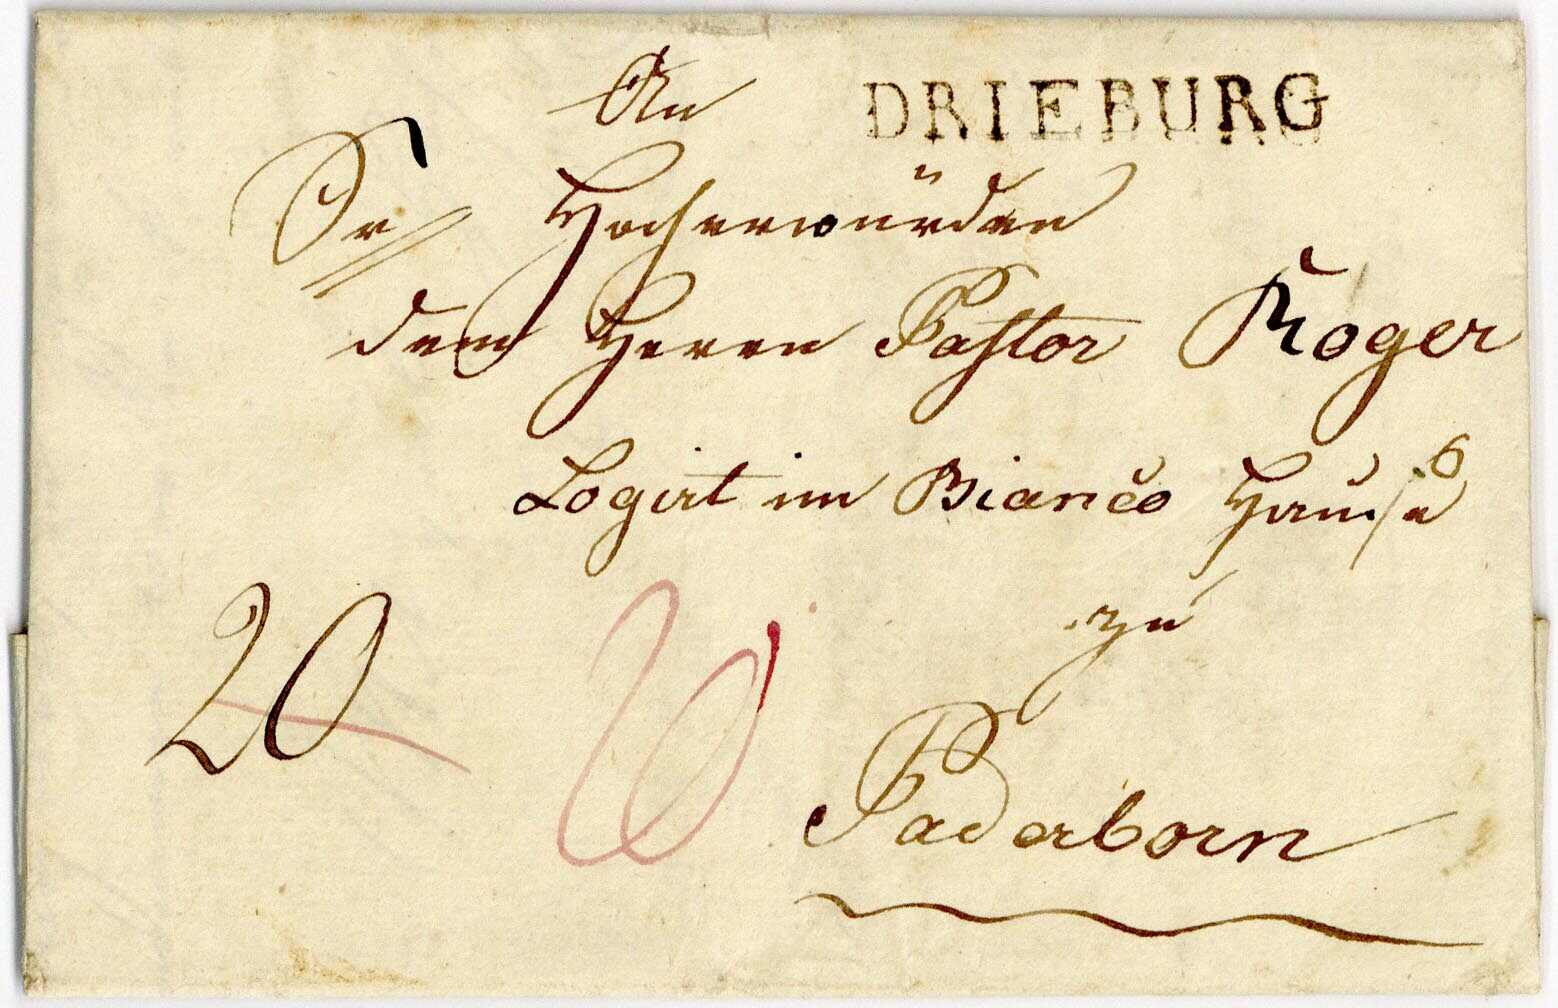 An
DRIEBURG
Sr Hocherwürden
dem Herrn Pastor Roger
Logirt im Bianco Hause
zu
20
Paderborn